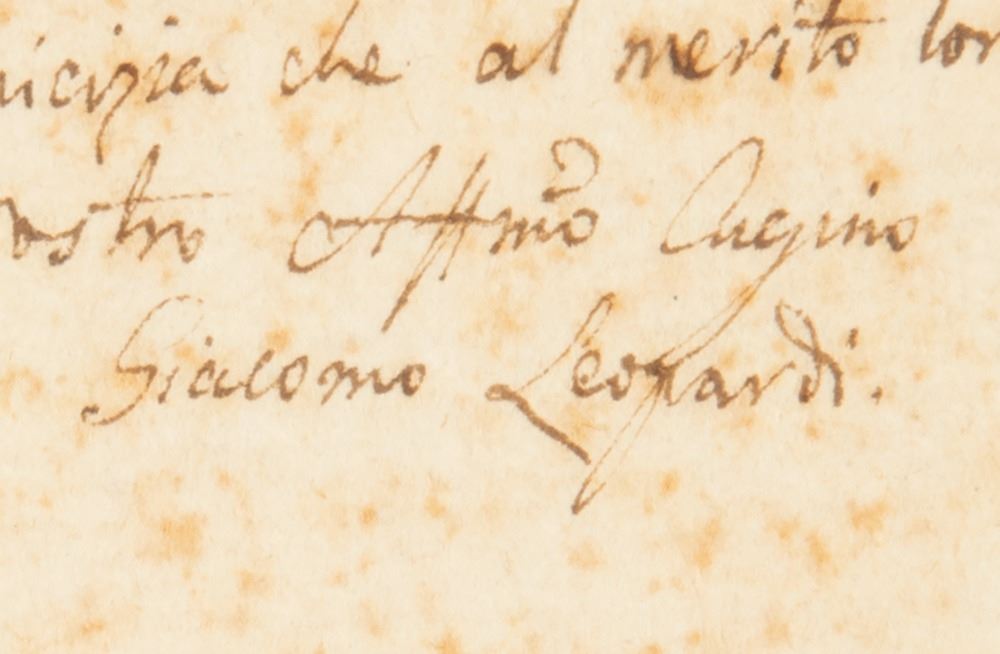 icizia che al merito lor
ostro Affmo Cugino
Giacomo Leopardi.